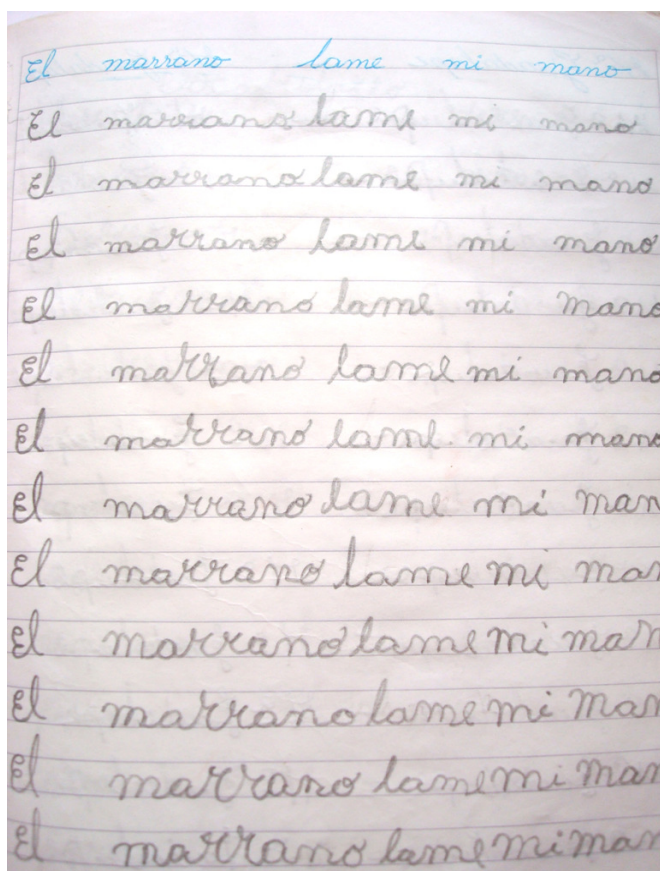 El marrano lame mi mano
El marrano lame mi mano
El marrano lame mi mano
El marrano lame mi mano
El marrano lame mi mano
El marrano lame mi mano
El marrano lame mi mano
El marrano lame mi man
El marrano lame mi man
El marrano lame mi man
El marrano lame mi man
El marrano lame mi man
El marrano lame mi man